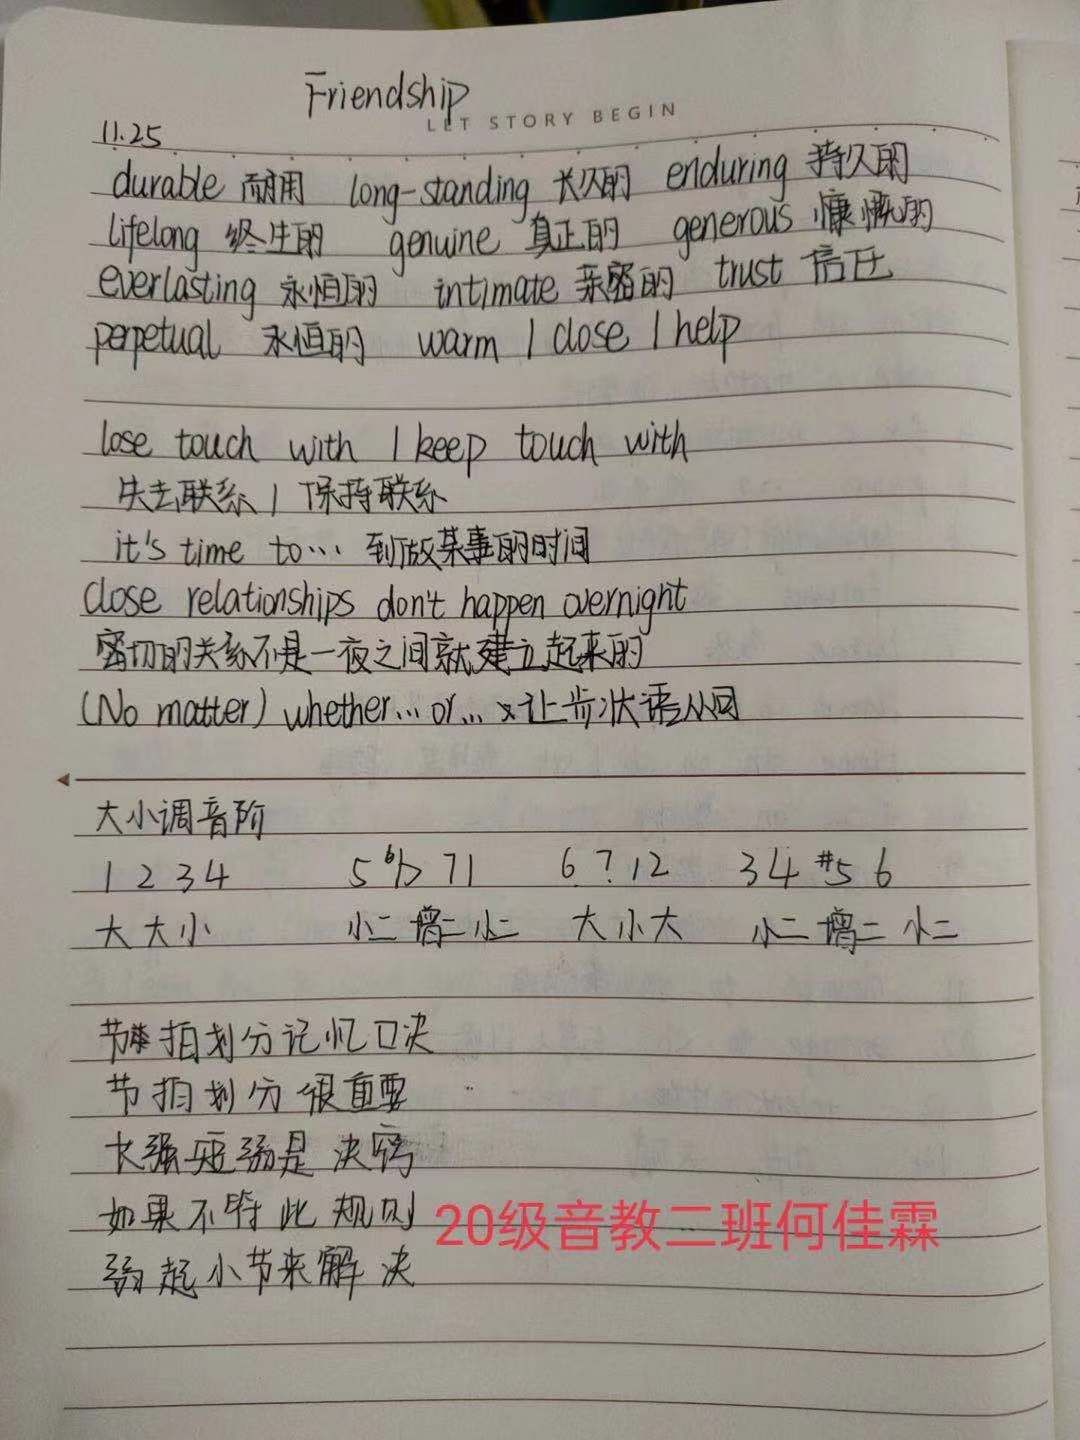 Friendship
LET STORY BEGIN
11.25
durable 耐用 long-standing 长久的 enduring 持久的
lifelong 终生的 genuine 真正的 generous 慷慨的
everlasting 永恒的 intimate 亲密的 trust 信任
perpetual 永恒的 warm / close / help
lose touch with / keep touch with
失去联系 / 保持联系
it's time to... 到做某事的时间
close relationships don't happen overnight
密切的关系不是一夜之间就建立起来的
(No matter) whether... or... x让步状语从句
大小调音阶
1 2 3 4 5 b6 7 1 6 7 1 2 3 4 #5 6
大大小 小二 增二 小二 大小大 小二 增二 小二
节拍划分记忆口决
节拍划分很重要
长强短弱是决窍
如果不符此规则
弱起小节来解决
20级音教二班何佳霖